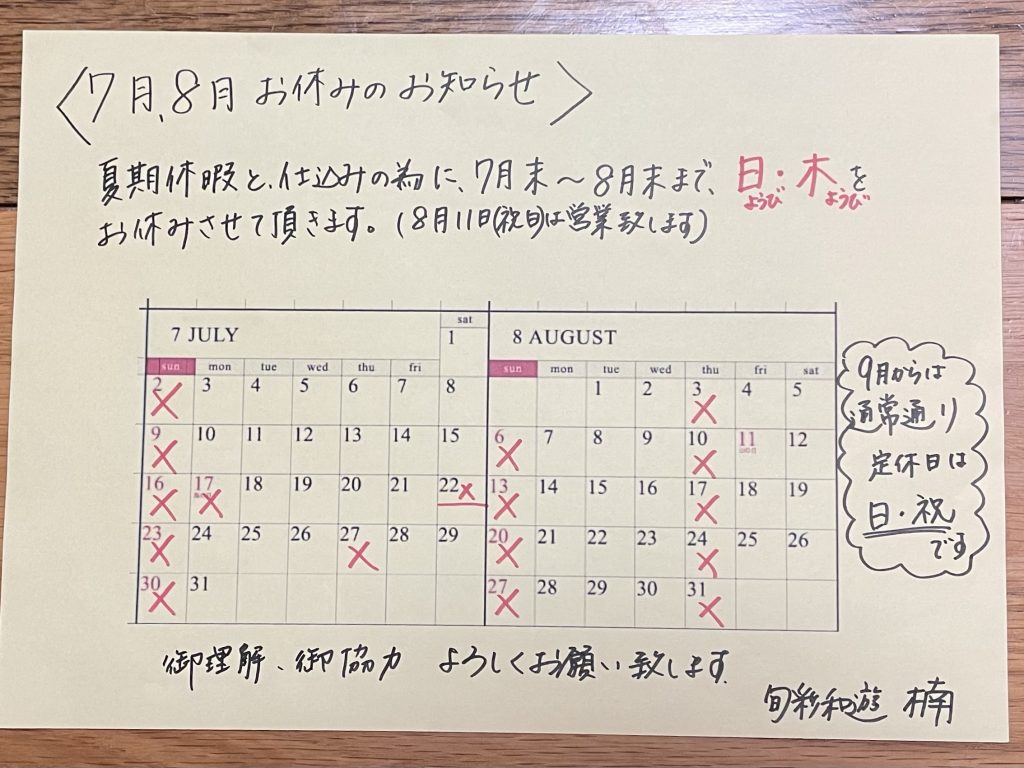 〈7月、8月 お休みのお知らせ〉
夏期休暇と、仕込みの為に、7月末～8月末まで、日・木を
ようび ようび
お休みさせて頂きます。(8月11日(祝日)は営業致します)
7 JULY
sat
1
sun mon tue wed thu fri
2 3 4 5 6 7 8
9 10 11 12 13 14 15
16 17 18 19 20 21 22
23 24 25 26 27 28 29
30 31
8 AUGUST
sun mon tue wed thu fri sat
1 2 3 4 5
6 7 8 9 10 11 12
13 14 15 16 17 18 19
20 21 22 23 24 25 26
27 28 29 30 31
9月からは
通常通り
定休日は
日・祝
です
御理解、御協力 よろしくお願い致します
旬彩和遊 楠